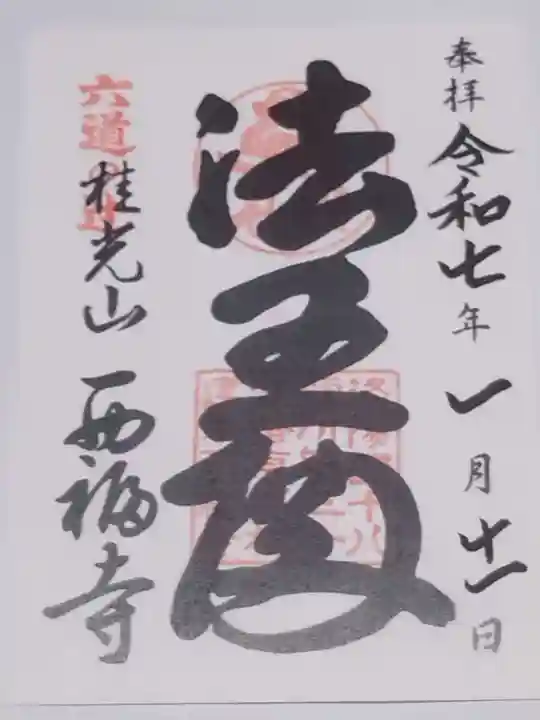 奉拝 令和七年一月十一日
法王
六道の辻
桂光山 西福寺